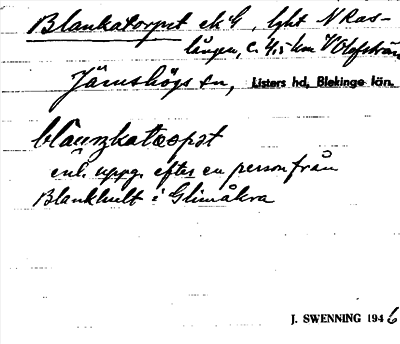 Blankatorpet ek G, lght N Ras-
lången, c. 4,5 km V Olofström
Jämshögs sn, Listers hd, Blekinge län.
blaŋkatɔrpət
enl. uppg. efter en person från
Blankhult i Glimåkra
J. SWENNING 1946